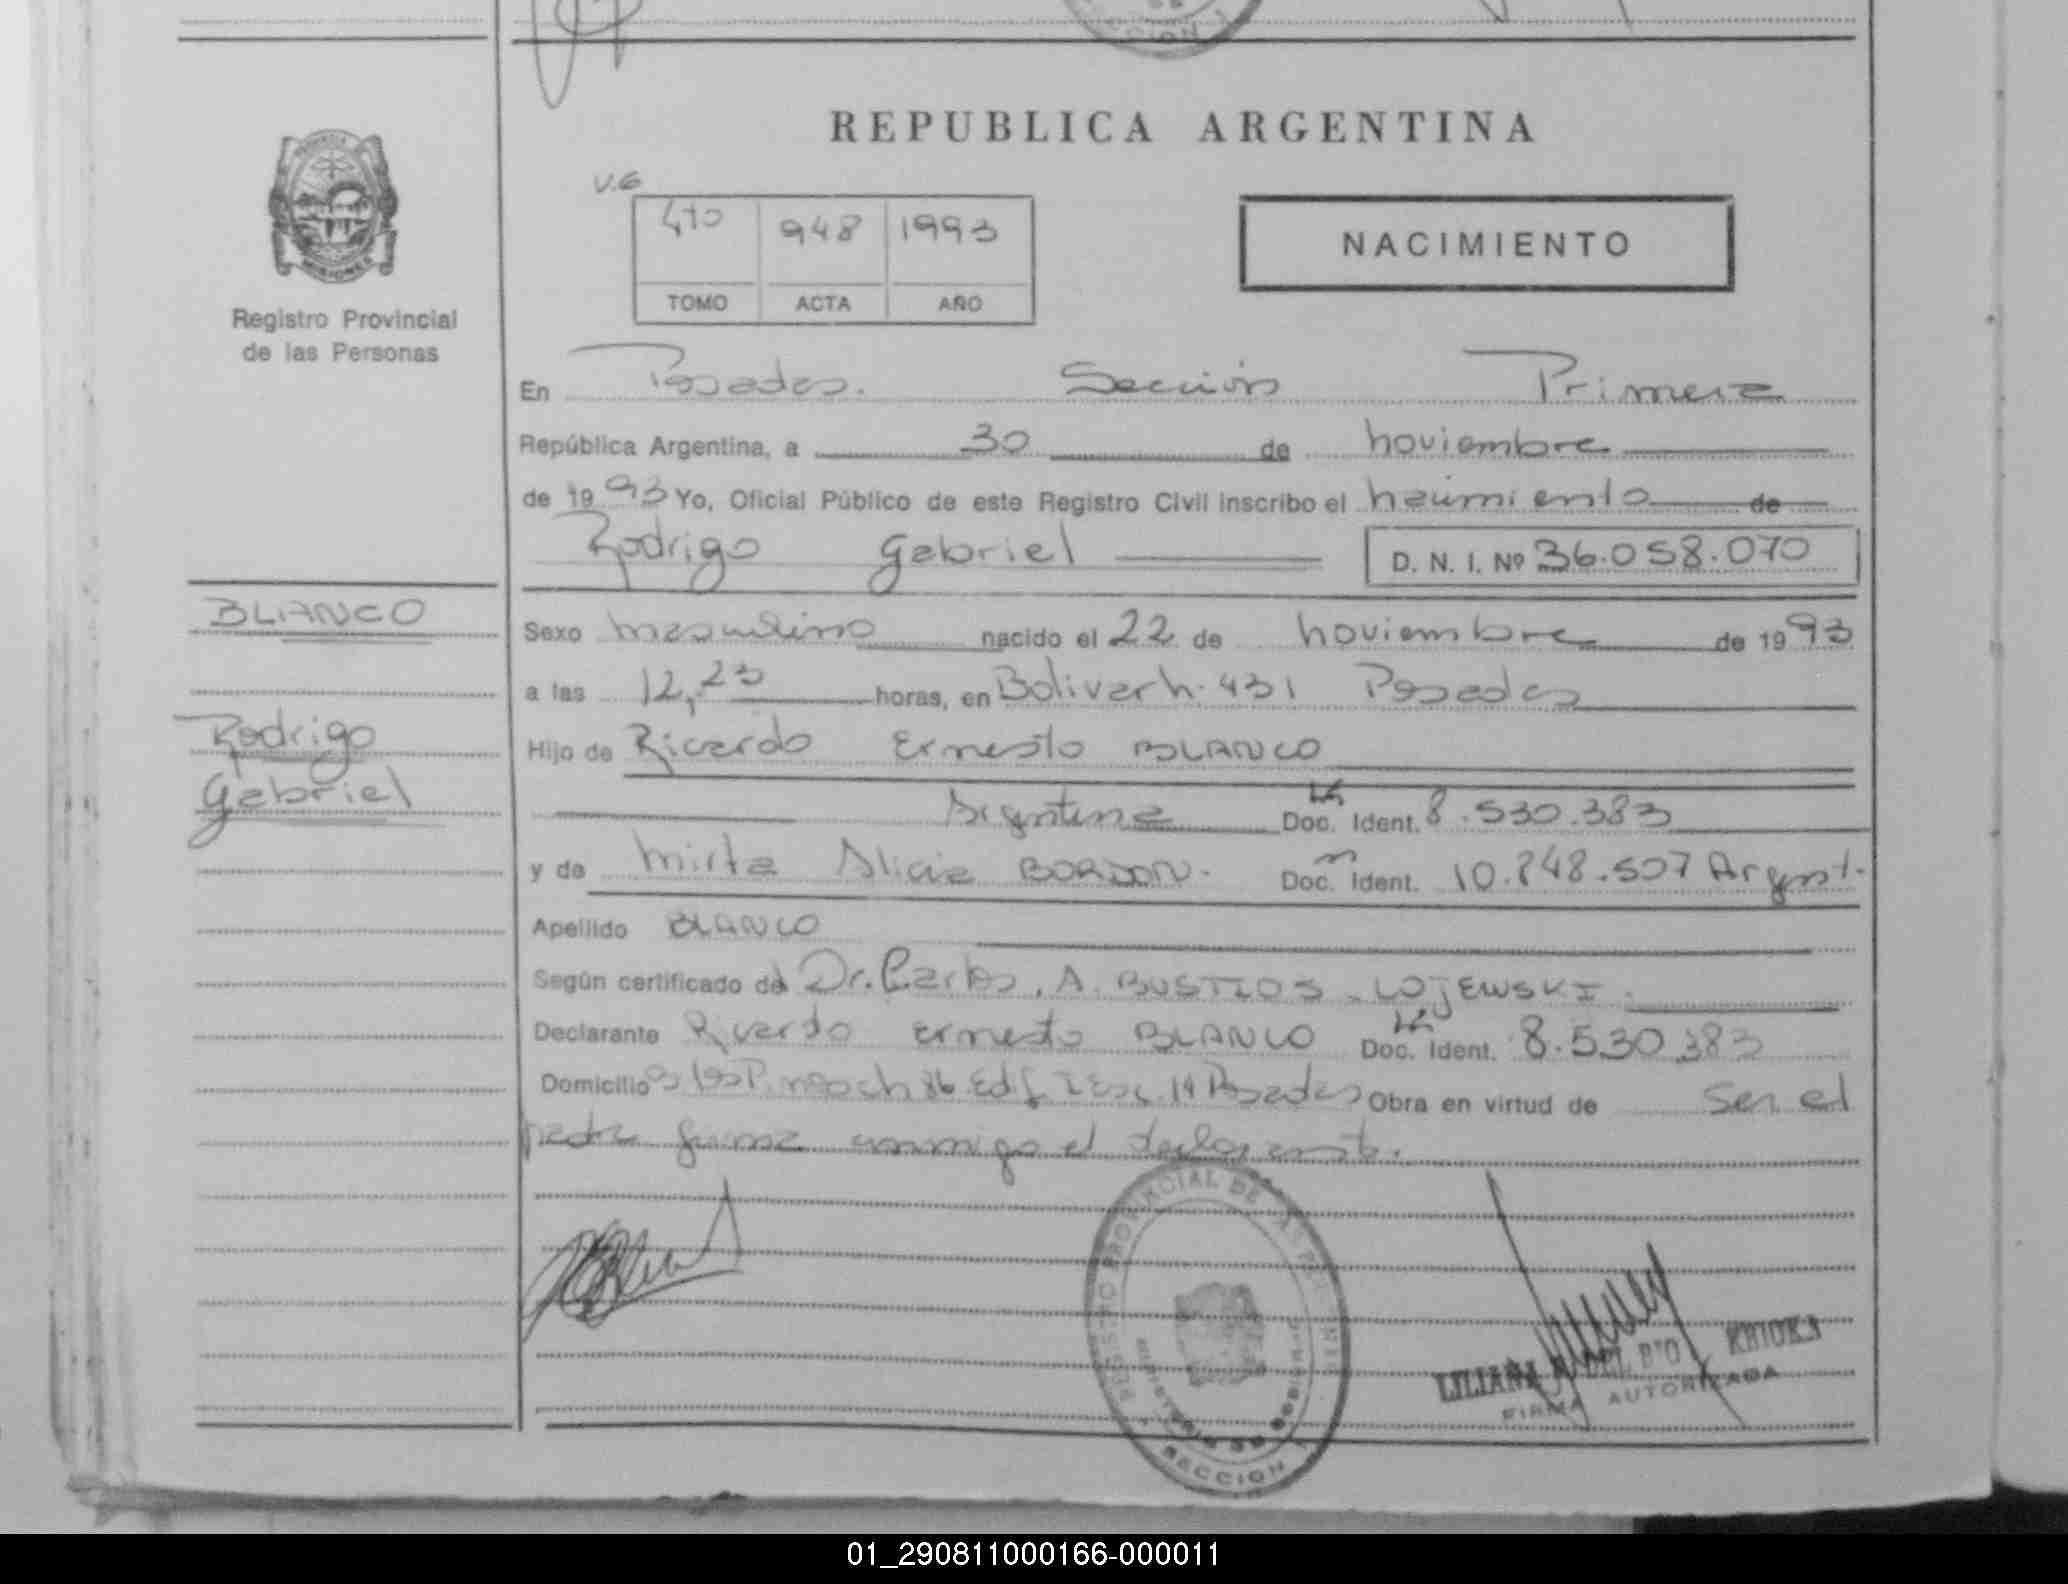 REPUBLICA ARGENTINA
V.6
4to 948 1993
TOMO ACTA AÑO
NACIMIENTO
MISIONES
Registro Provincial
de las Personas
En Posadas. Sección Primera
República Argentina, a 30 de noviembre
de 1993 Yo, Oficial Público de este Registro Civil inscribo el nacimiento de
Rodrigo Gabriel D. N. I. Nº 36.058.070
BLANCO
Rodrigo
Gabriel
Sexo masculino nacido el 22 de noviembre de 1993
a las 12,23 horas, en Bolivar n. 431 Posadas
Hijo de Ricardo Ernesto BLANCO
Argentina Doc. Ident. 8.530.383
y de Mirta Alicia BORDON. Doc. Ident. 10.848.507 Argent.
Apellido BLANCO
Según certificado del Dr. Carlos. A. BUSTIOS - LOJEWSKI.
Declarante Ricardo Ernesto BLANCO Doc. Ident. 8.530.383
Domicilio 86 Edf. Esc. 14 Posadas Obra en virtud de ser el
padre firma conmigo el declarante.
REGISTRO PROVINCIAL DE LAS PERSONAS
SECCION 1
LILIANA DEL
FIRMA AUTORIZADA
01_290811000166-000011